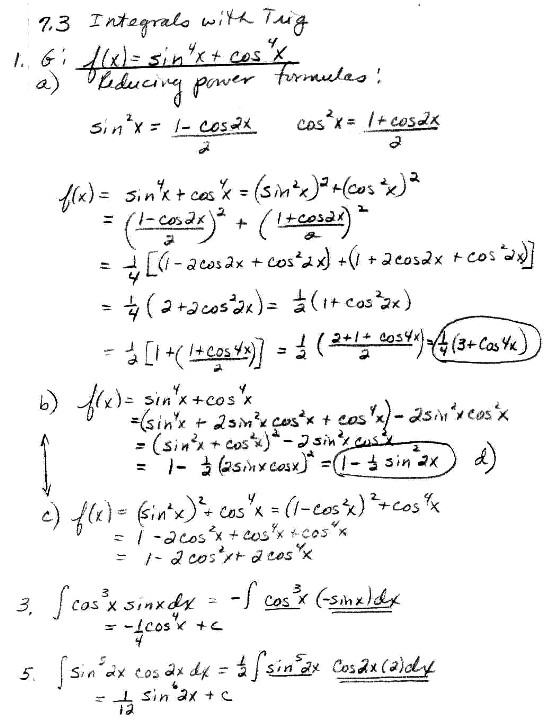 7.3 Integrals with Trig
1. G: f(x) = sin⁴x + cos⁴x
a) Reducing power formulas:
sin²x = (1 - cos2x)/2    cos²x = (1 + cos2x)/2
f(x) = sin⁴x + cos⁴x = (sin²x)² + (cos²x)²
= ((1 - cos2x)/2)² + ((1 + cos2x)/2)²
= 1/4 [(1 - 2cos2x + cos²2x) + (1 + 2cos2x + cos²2x)]
= 1/4 (2 + 2cos²2x) = 1/2 (1 + cos²2x)
= 1/2 [1 + ((1 + cos4x)/2)] = 1/2 ((2 + 1 + cos4x)/2) = 1/4 (3 + cos4x)
b) f(x) = sin⁴x + cos⁴x
= (sin⁴x + 2sin²x cos²x + cos⁴x) - 2sin²x cos²x
= (sin²x + cos²x)² - 2sin²x cos²x
= 1 - 1/2 (2sinx cosx)² = 1 - 1/2 sin²2x    d)
c) f(x) = (sin²x)² + cos⁴x = (1 - cos²x)² + cos⁴x
= 1 - 2cos²x + cos⁴x + cos⁴x
= 1 - 2cos²x + 2cos⁴x
3. ∫cos³x sinx dx = -∫ cos³x (-sinx)dx
= -1/4 cos⁴x + c
5. ∫sin⁵2x cos2x dx = 1/2 ∫sin⁵2x cos2x (2)dx
= 1/12 sin⁶2x + c